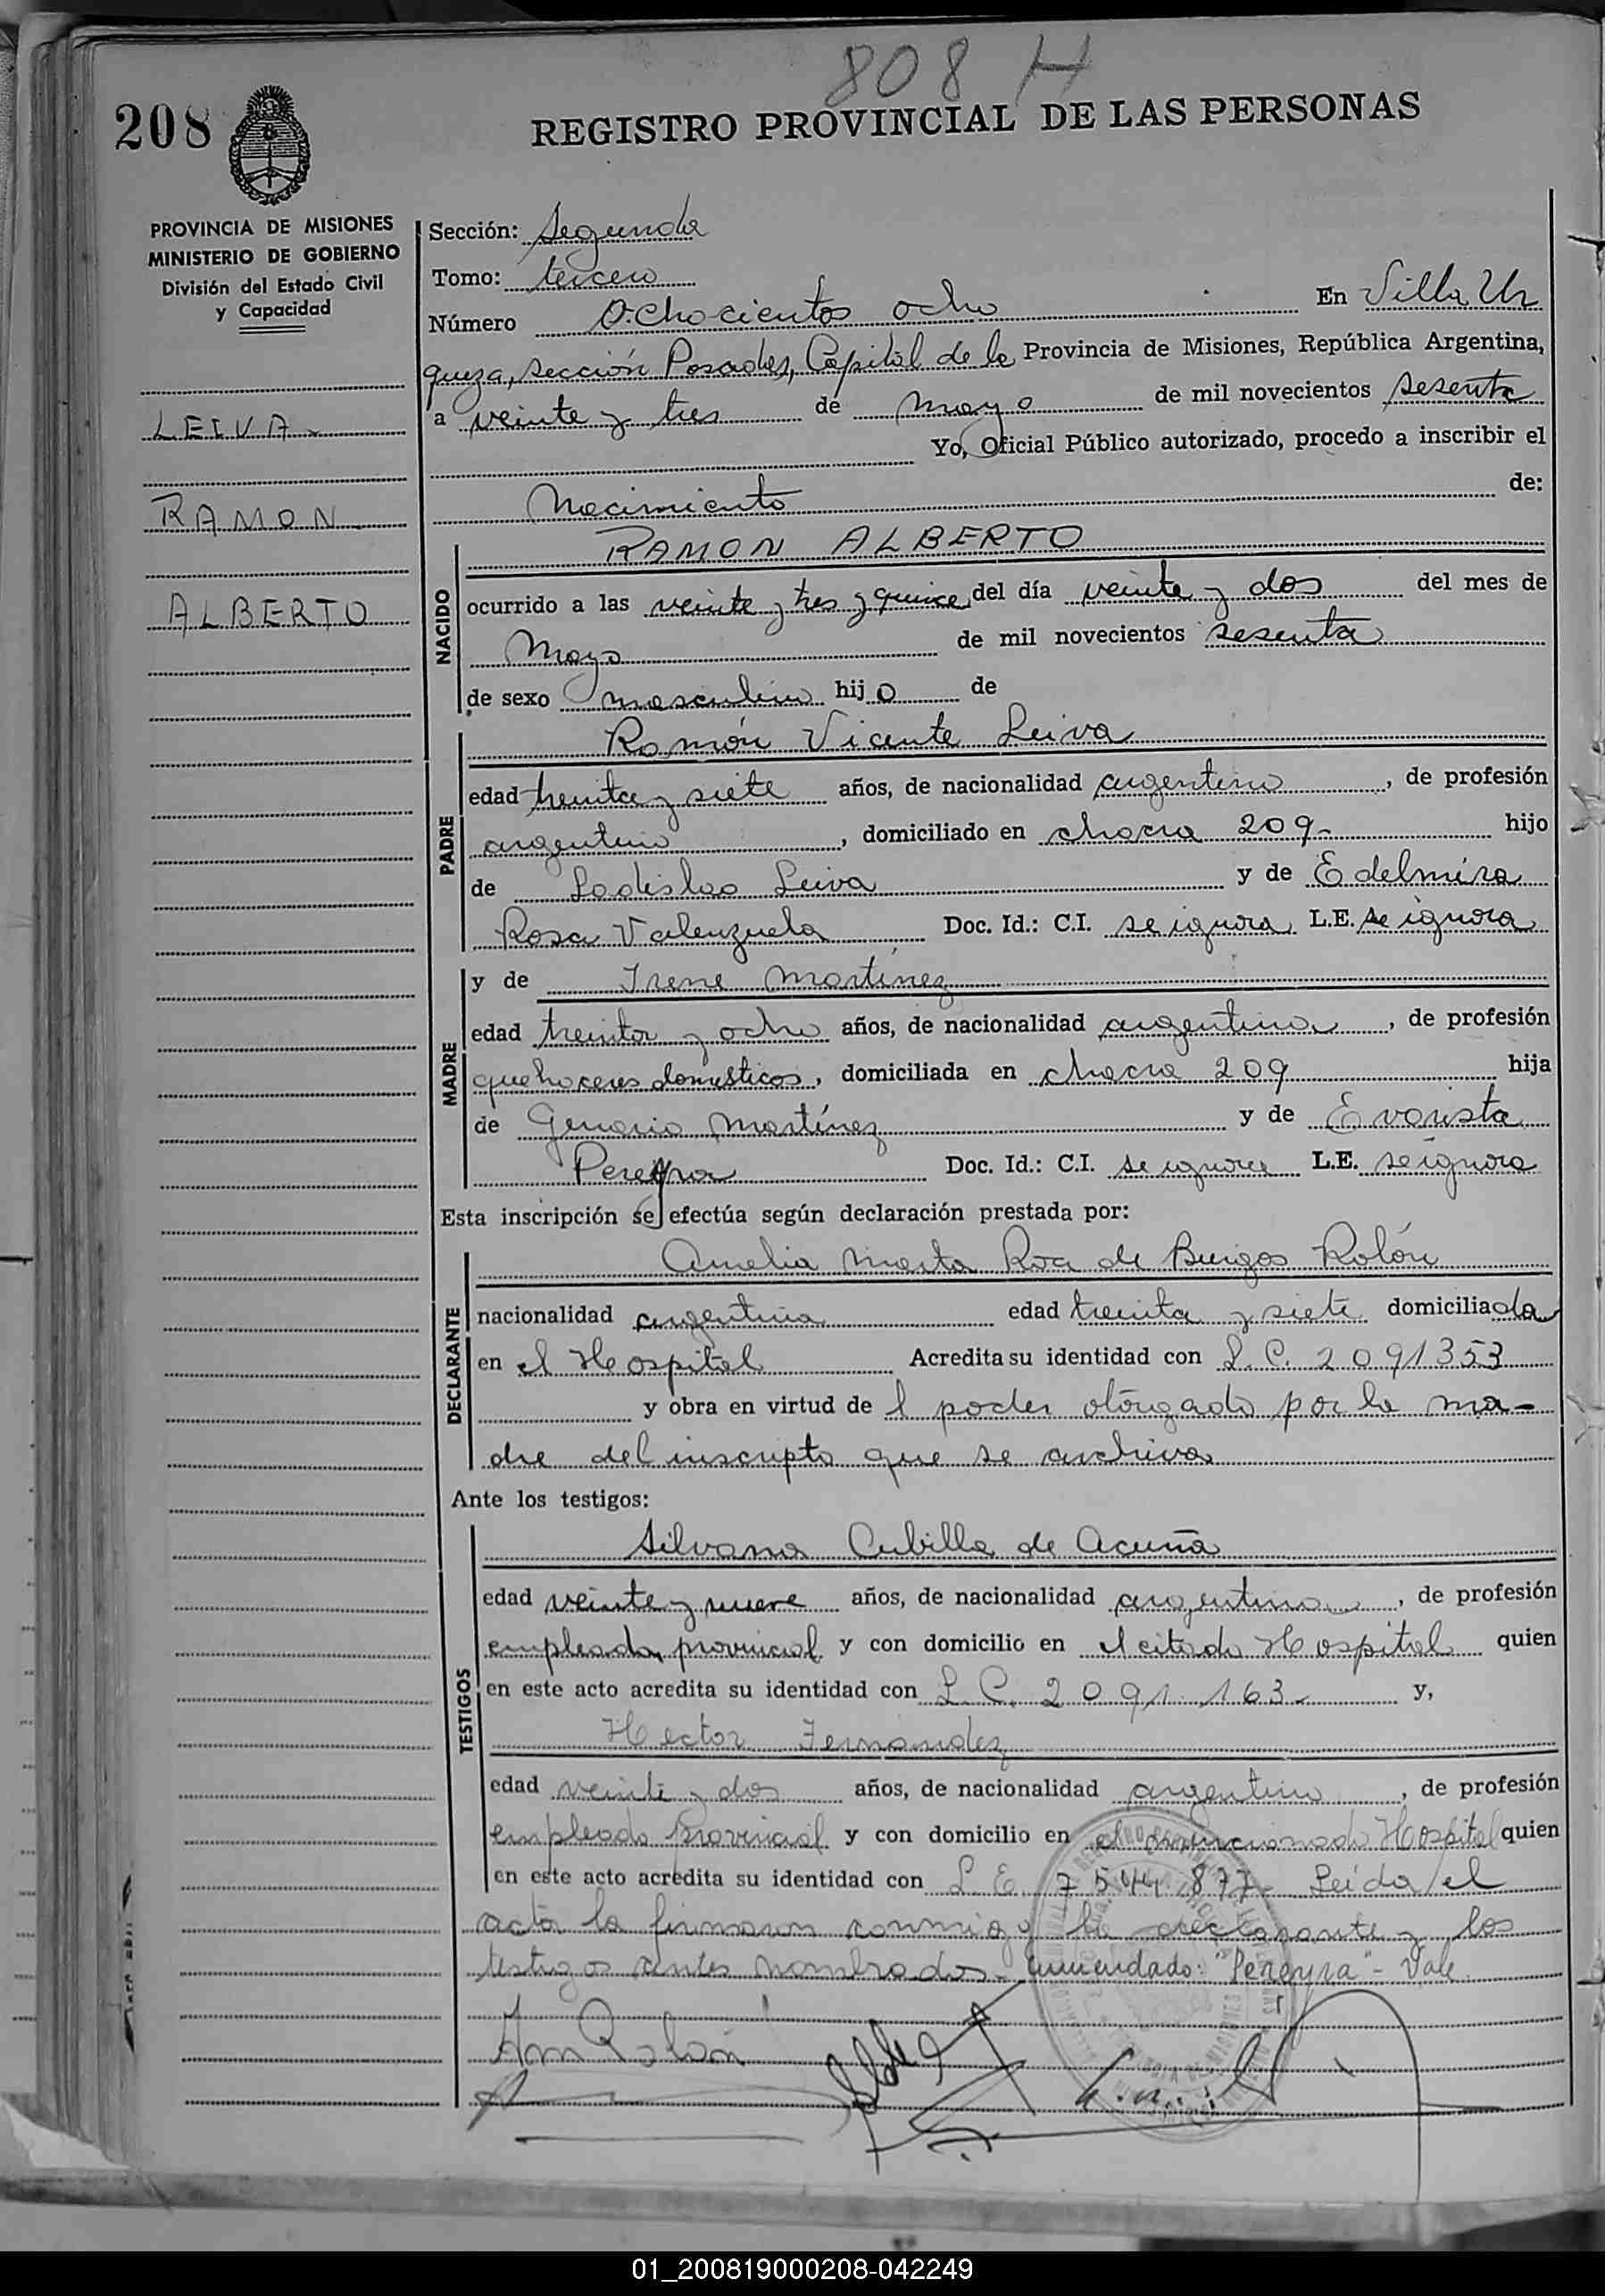 808 H
208
REGISTRO PROVINCIAL DE LAS PERSONAS
PROVINCIA DE MISIONES
MINISTERIO DE GOBIERNO
División del Estado Civil
y Capacidad
LEIVA
RAMON
ALBERTO
Sección: Segunda
Tomo: tercero
Número Ochocientos ocho En Villa Ur
quiza, sección Posadas, Capital de la Provincia de Misiones, República Argentina,
a veinte y tres de mayo de mil novecientos sesenta
Yo, Oficial Público autorizado, procedo a inscribir el
Nacimiento de:
NACIDO
RAMON ALBERTO
ocurrido a las veinte y tres y quince del día veinte y dos del mes de
Mayo de mil novecientos sesenta
de sexo masculino hijo de
PADRE
Ramón Vicente Leiva
edad treinta y siete años, de nacionalidad argentino, de profesión
argentino, domiciliado en chacra 209- hijo
de Ladislao Leiva y de Edelmira
Rosa Valenzuela Doc. Id.: C.I. se ignora L.E. se ignora
MADRE
y de Irene Martínez
edad treinta y ocho años, de nacionalidad argentina, de profesión
quehaceres domésticos, domiciliada en chacra 209 hija
de Genario Martínez y de Evarista
Pereyra Doc. Id.: C.I. se ignora L.E. se ignora
Esta inscripción se efectúa según declaración prestada por:
DECLARANTE
Amelia Marta Roa de Burgos Rolón
nacionalidad argentina edad treinta y siete domiciliada
en el Hospital Acredita su identidad con L.C. 2091353
y obra en virtud de l poder otorgado por la ma-
dre del inscripto que se archiva
Ante los testigos:
TESTIGOS
Silvana Cubilla de Acuña
edad veinte y nueve años, de nacionalidad argentina, de profesión
empleada provincial y con domicilio en el citado Hospital quien
en este acto acredita su identidad con L.C. 2091163- y,
Hector Fernandez
edad veinte y dos años, de nacionalidad argentino, de profesión
empleado Provincial y con domicilio en el mencionado Hospital quien
en este acto acredita su identidad con L.E. 7544877- Leída el
acta la firmaron conmigo la declarante y los
testigos antes nombrados- Enmendado: "Pereyra" - Vale
01_200819000208-042249